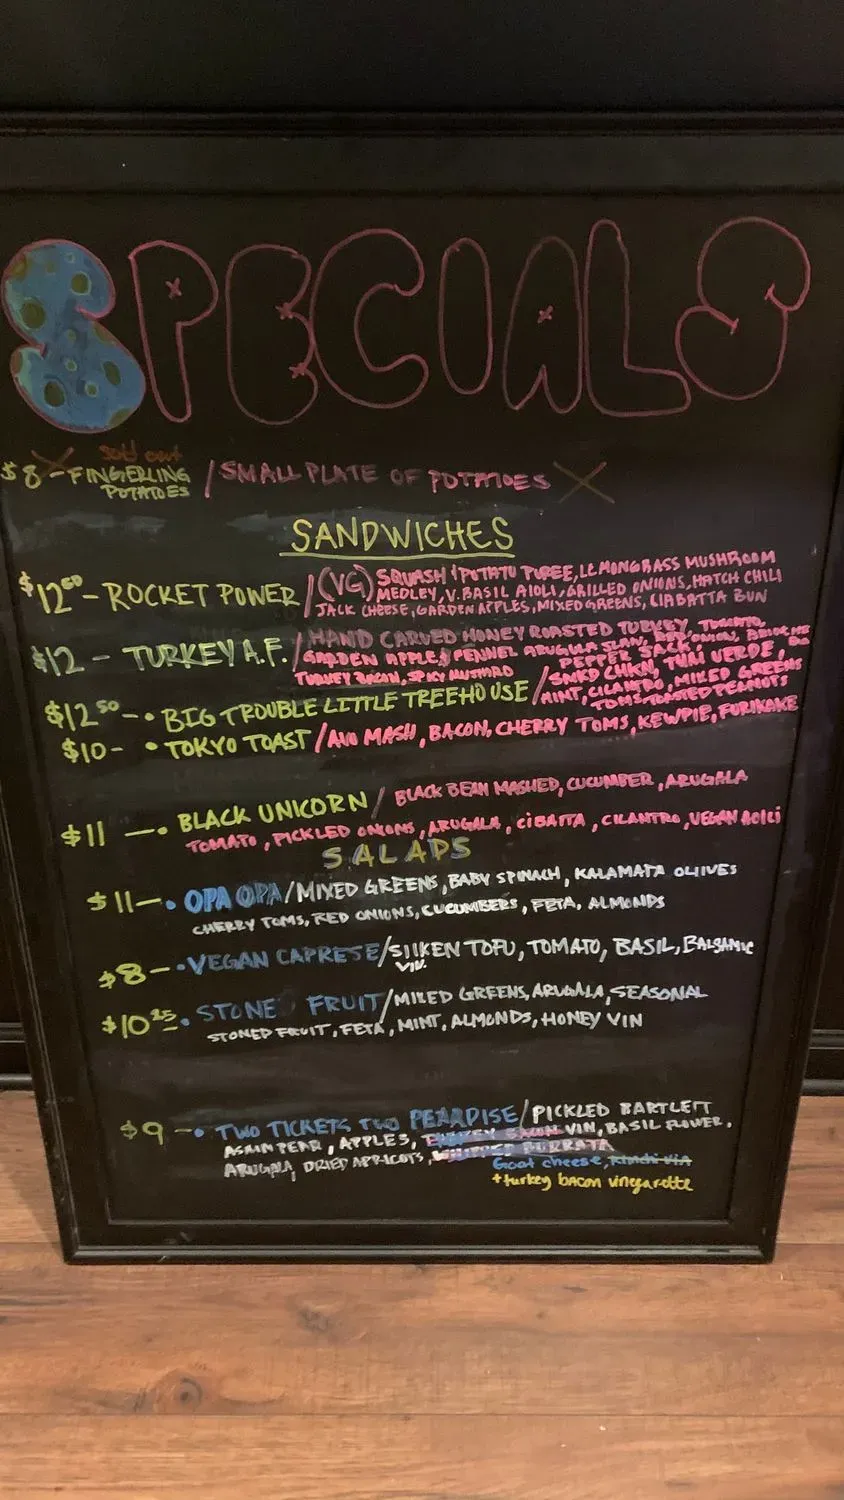 SPECIALS
sold out
$8 - FINGERLING / SMALL PLATE OF POTATOES
POTATOES
SANDWICHES
$12⁵⁰ - ROCKET POWER / (VG) SQUASH POTATO PUREE, LEMONGRASS MUSHROOM
MEDLEY, V. BASIL AIOLI, GRILLED ONIONS, HATCH CHILI
JACK CHEESE, GARDEN APPLES, MIXED GREENS, CIABATTA BUN
$12 - TURKEY A.F. / HAND CARVED HONEY ROASTED TURKEY, TOMATO,
GARDEN APPLE, FENNEL ARUGULA SLAW, RED ONION,
PEPPER JACK,
TURKEY BACON, SPICY MUSTARD
$12⁵⁰ - • BIG TROUBLE LITTLE TREEHOUSE / SMKD CHKN, THAI VERDE,
MINT, CILANTRO, MIXED GREENS
TOMS, TOASTED PEANUTS
$10 - • TOKYO TOAST / AVO MASH, BACON, CHERRY TOMS, KEWPIE, FURIKAKE
$11 - • BLACK UNICORN / BLACK BEAN MASHED, CUCUMBER, ARUGALA
TOMATO, PICKLED ONIONS, ARUGALA, CIBATTA, CILANTRO, VEGAN AOILI
SALADS
$11 - • OPA OPA / MIXED GREENS, BABY SPINACH, KALAMATA OLIIVES
CHERRY TOMS, RED ONIONS, CUCUMBERS, FETA, ALMONDS
$8 - • VEGAN CAPRESE / SILKEN TOFU, TOMATO, BASIL, BALSAMIC
VIN.
$10²⁵ • STONE FRUIT / MIXED GREENS, ARUGALA, SEASONAL
STONED FRUIT, FETA, MINT, ALMONDS, HONEY VIN
$9 - • TWO TICKETS TWO PEARDISE / PICKLED BARTLETT
ASAIN PEAR, APPLES, TURKEY BACON VIN, BASIL FLOWER,
ARUGALA, DRIED APRICOTS, WHIPPED BURRATA
Goat cheese, Kimchi vin
+ turkey bacon vinegarette